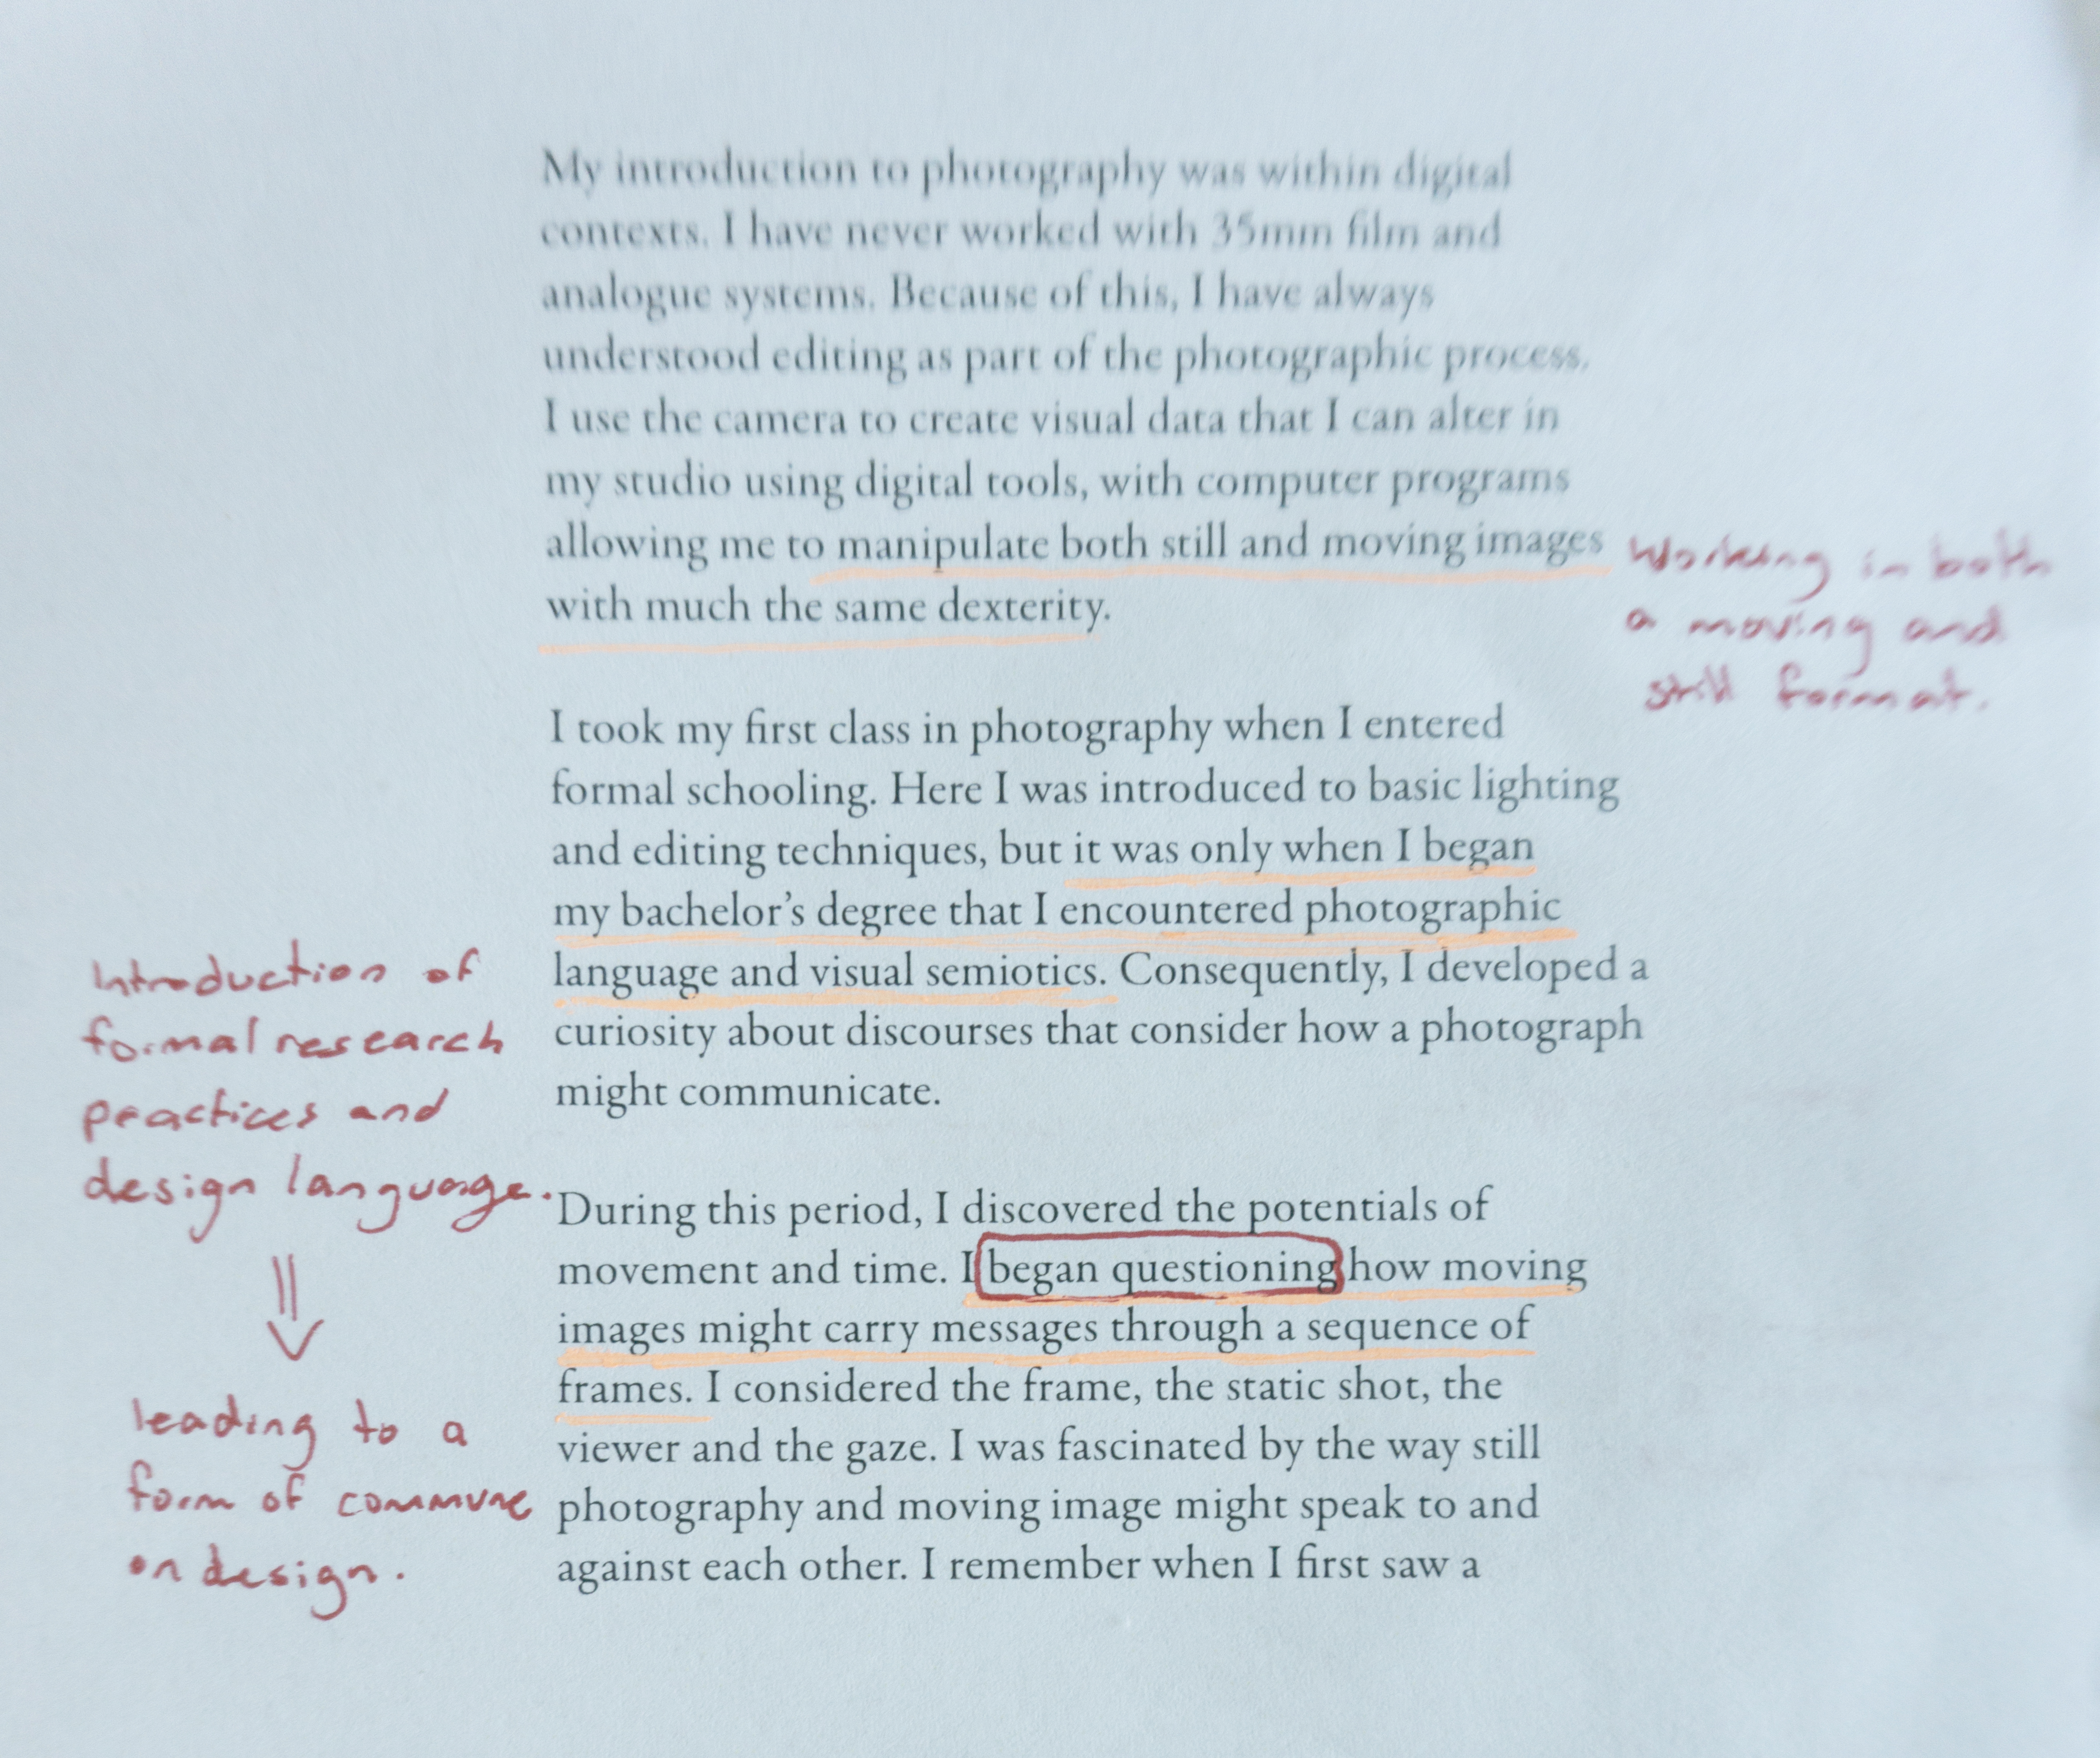 My introduction to photography was within digital
contexts. I have never worked with 35mm film and
analogue systems. Because of this, I have always
understood editing as part of the photographic process.
I use the camera to create visual data that I can alter in
my studio using digital tools, with computer programs
allowing me to manipulate both still and moving images
with much the same dexterity.
Working in both
a moving and
still format.
I took my first class in photography when I entered
formal schooling. Here I was introduced to basic lighting
and editing techniques, but it was only when I began
my bachelor's degree that I encountered photographic
language and visual semiotics. Consequently, I developed a
curiosity about discourses that consider how a photograph
might communicate.
Introduction of
formal research
practices and
design language.
leading to a
form of commune
on design.
During this period, I discovered the potentials of
movement and time. I began questioning how moving
images might carry messages through a sequence of
frames. I considered the frame, the static shot, the
viewer and the gaze. I was fascinated by the way still
photography and moving image might speak to and
against each other. I remember when I first saw a